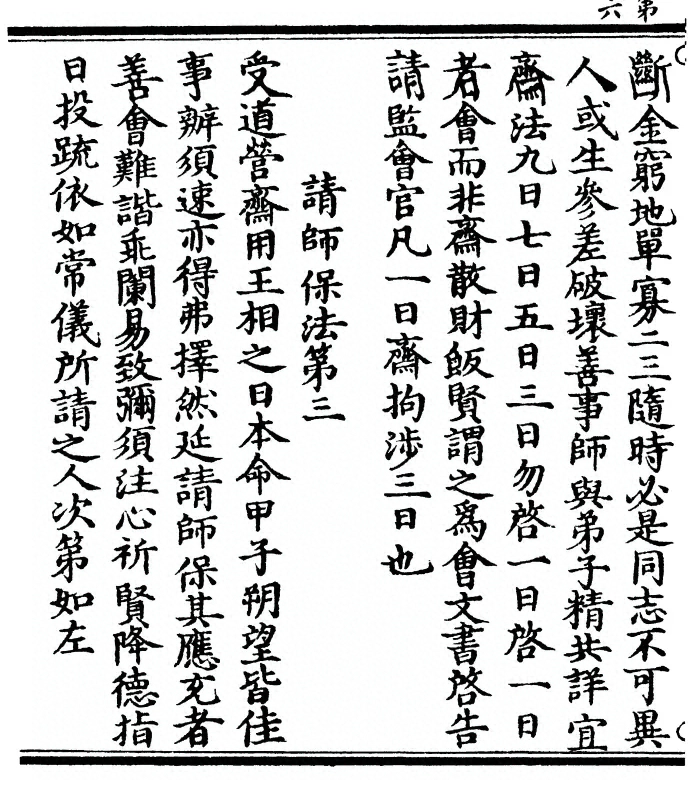 第六
斷金窮地單寡二三隨時必是同志不可異
人或生參差破壞善事師與弟子精共詳宜
齋法九日七日五日三日勿啓一日啓一日
者會而非齋散財飯賢謂之爲會文書啓告
請監會官凡一日齋拘涉三日也
請師保法第三
受道營齋用王相之日本命甲子朔望皆佳
事辦須速亦得弗擇然延請師保其應充者
善會難諧乖闌易致彌須注心祈賢降德指
日投䟽依如常儀所請之人次第如左